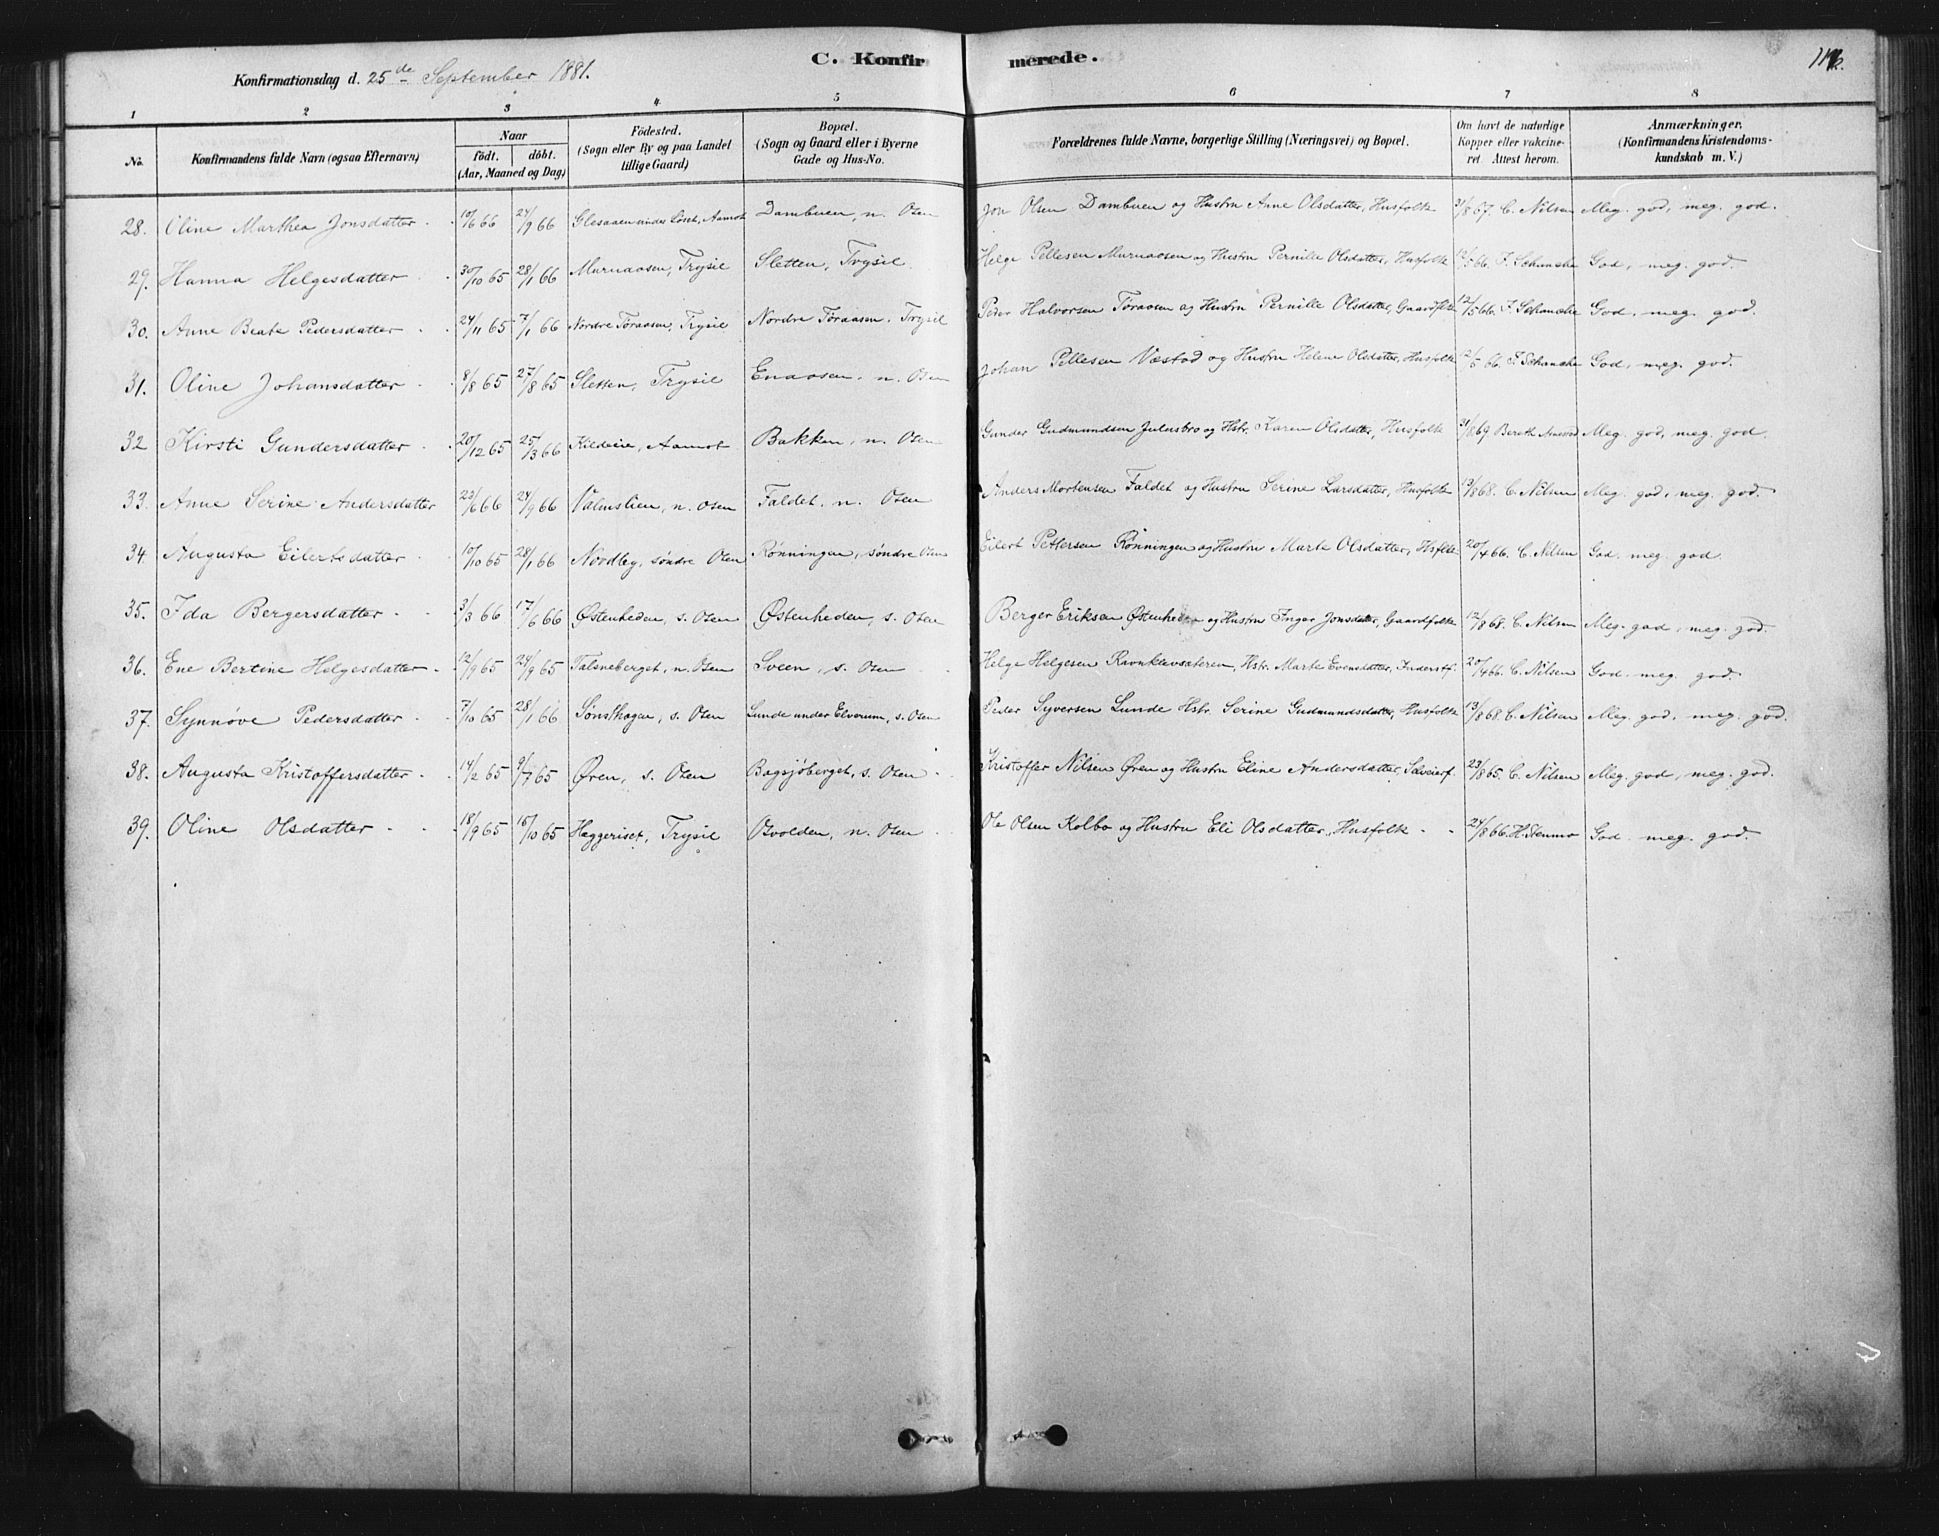 C. Konfirmerede.
Konfirmationsdag d. 25de September 1881.
1 2 3 4 5 6 7 8
No. Konfirmandens fulde Navn (ogsaa Efternavn) Naar födt. döbt. (Aar, Maaned og Dag) Födested. (Sogn eller By og paa Landet tillige Gaard) Bopæl. (Sogn og Gaard eller i Byerne Gade og Hus-No. Forældrenes fulde Navne, borgerlige Stilling (Næringsvei) og Bopæl. Om havt de naturlige Kopper eller vakcineret. Attest herom. Anmærkninger. (Konfirmandens Kristendomskundskab m. V.)
28. Oline Marthea Jonsdatter 10/6 66 24/9 66 Glesaaen under Löset, Aamot Dambuen, n. Osen Jon Olsen Dambuen og Hustru Anne Olsdatter, Husfolk 31/8 67. C. Nilsen Meg. god, meg. god.
29. Hanna Helgesdatter 30/10 65 28/1 66 Murnaasen, Trysil Sletten, Trysil Helge Pellesen Murnaasen og Hustru Pernille Olsdatter, Husfolk 12/5 66. F. Schanche God, meg. god.
30. Anne Beate Pedersdatter 24/11 65 7/1 66 Nordre Töraasen, Trysil Nordre Töraasen, Trysil Peder Halvorsen Töraasen og Hustru Pernille Olsdatter, Gaardflk 12/5 66. F. Schanche God, meg. god.
31. Oline Johansdatter 8/8 65 27/8 65 Sletten, Trysil Enaasen, n. Osen Johan Pellesen Væstad og Hustru Helene Olsdatter, Husfolk 12/5 66. F. Schanche God, meg. god.
32 Kirsti Gundersdatter 20/12 65 25/3 66 Kildeeie, Aamot Bakken, n. Osen Gunder Gudmundsen Julusbro og Hstr. Karen Olsdatter, Husfolk 31/8 69 Bereth Meg. god, meg. god.
33. Anne Serine Andersdatter 23/6 66 24/9 66 Valmslien, n. Osen Faldet, n. Osen Anders Mortensen Faldet og Hustru Serine Larsdatter, Husfolk 13/8 68. C. Nilsen Meg. god, meg. god.
34. Augusta Eilertsdatter 10/10 65 28/1 66 Nordby, søndre Osen Rønningen, søndre Osen Eilert Pettersen Rönningen og Hustru Marte Olsdatter, Hsflk 20/4 66. C. Nilsen God. meg. god
35. Ida Bergersdatter 3/3 66 17/6 66 Østenheden, s. Osen Østenheden, s. Osen Berger Eriksen Østenheden og Hustru Ingar Jonsdatter, Gaardfolk 12/8 68. C. Nilsen Meg. god, meg. god.
36. Ene Bertine Helgesdatter 12/9 65 24/9 65 Talsneberget, n. Osen Sveen, s. Osen Helge Helgesen Ravnklevsæteren, Hstr. Marte Evensdatter, Inderstf. 20/4 66. C. Nilsen God. meg. god.
37. Synnöve Pedersdatter 7/10 65 28/1 66 Sönskogen, s. Osen Lunde under Elverum, s. Osen Peder Syversen Lunde Hstr. Serine Gudmundsdatter, Husfolk 13/8 68. C. Nilsen Meg. god, meg. god.
38. Augusta Kristoffersdatter 14/2 65 9/7 65 Øren, s. Osen Bagsjöberget, s. Osen Kristoffer Nilsen Øren og Hustru Eline Andersdatter, Selveierf. 23/8 65. C. Nilsen Meg. god, meg. god.
39. Oline Olsdatter 18/9 65 15/10 65 Heggeriset, Trysil Osvolden, n. Osen Ole Olsen Kolbo og Hustru Eli Olsdatter, Husfolk 24/8 66. H. Stenmo God. meg. god.